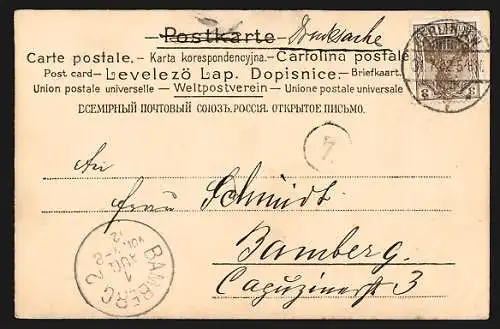 Postkarte Drucksache
Carte postale. — Karta korespondencyjna. — Cartolina postale
Post card — Levelező Lap. Dopisnice. — Briefkaart.
Union postale universelle — Weltpostverein — Unione postale universale
ВСЕМІРНЫЙ ПОЧТОВЫЙ СОЮЗЪ. РОССІЯ. ОТКРЫТОЕ ПИСЬМО.
7.
An
Frau Schmidt
Bamberg.
Capuzinerstr. 3
BAMBERG 2
1
AUG
3
3